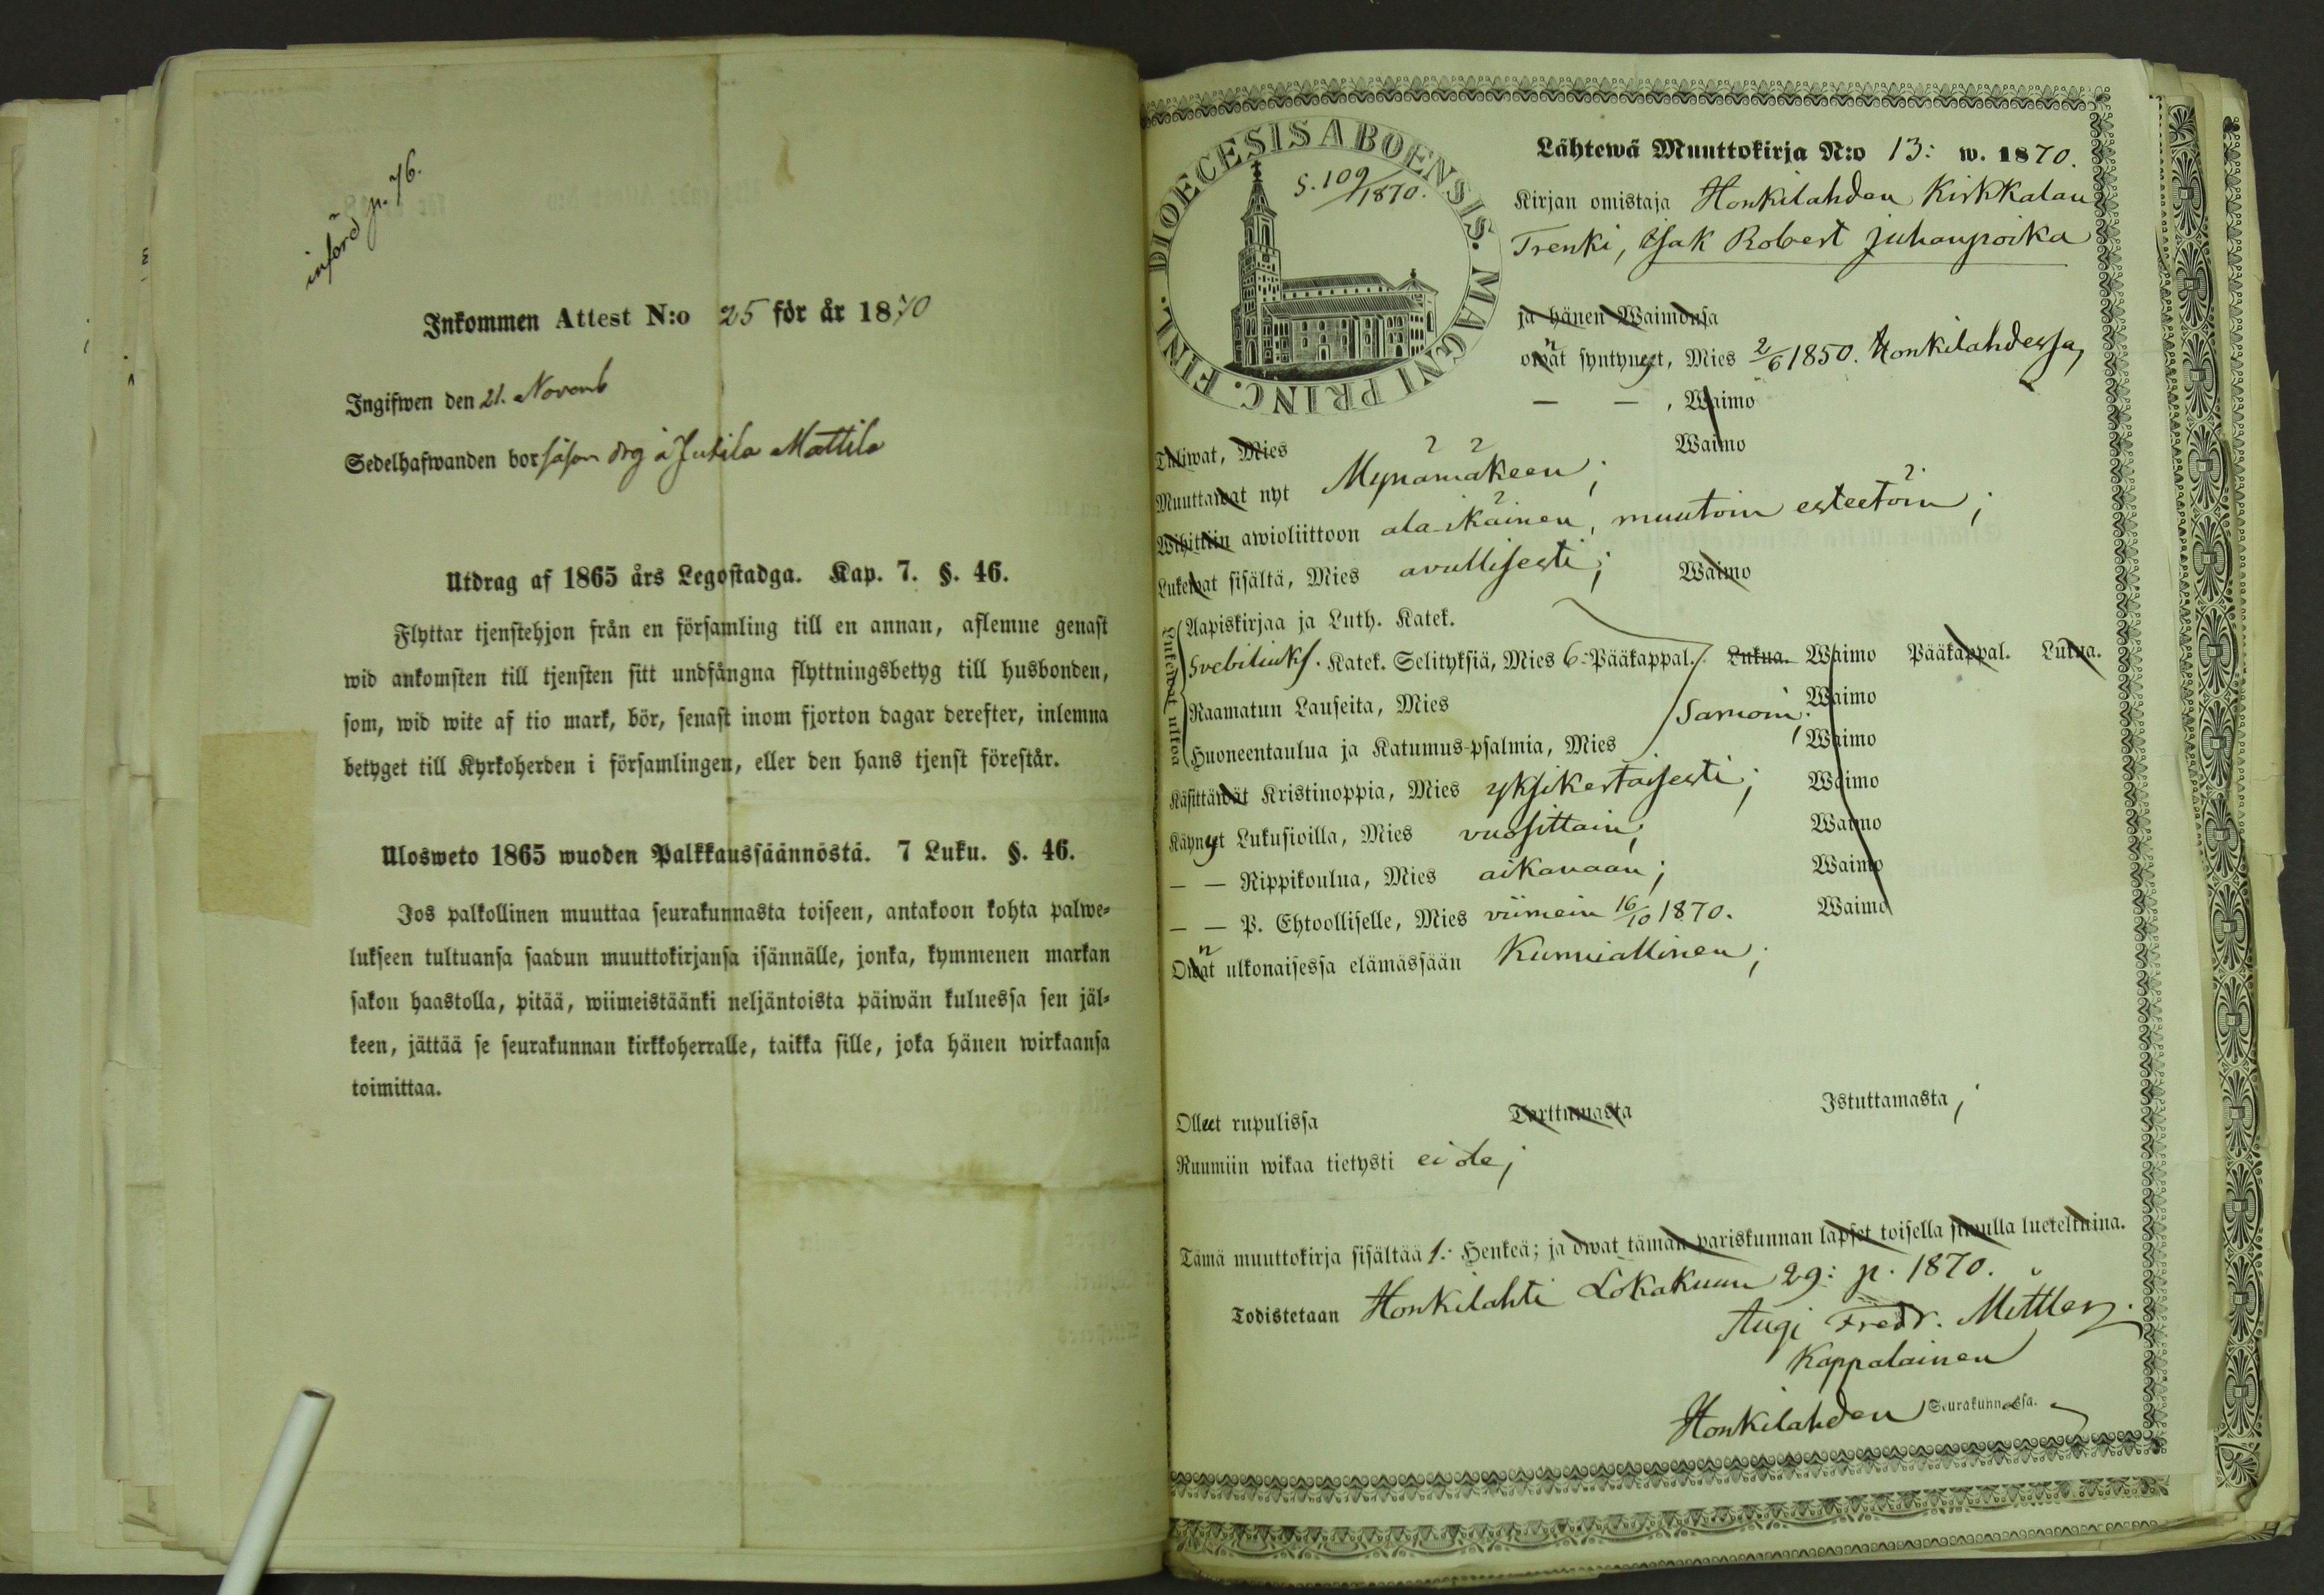 införd p. 76.
Inkommen Attest N:o 25 för år 1870
Ingifwen den 21. Novemb
Sedelhafwanden bor såsom drg å Jutila Mattila
Utdrag af 1865 års Legostadga. Kap. 7. §. 46.
Flyttar tjenstehjon från en församling till en annan, aflemne genast
wid ankomsten till tjensten sitt undfångna flyttningsbetyg till husbonden,
som, wid wite af tio mark, bör, senast inom fjorton dagar derefter, inlemna
betyget till Kyrkoherden i församlingen, eller den hans tjenst förestår.
Ulosweto 1865 wuoden Palkkaussäännöstä. 7 Luku. §. 46.
Jos palkollinen muuttaa seurakunnasta toiseen, antakoon kohta palwe-
lukseen tultuansa saadun muuttokirjansa isännälle, jonka, kymmenen markan
sakon haastolla, pitää, wiimeistäänki neljäntoista päiwän kuluessa sen jäl-
keen, jättää se seurakunnan kirkkoherralle, taikka sille, joka hänen wirkaansa
toimittaa.
DIOECESIS ABOENSIS. MAGNI PRINC. FINL.
S. 109/1870.
Lähtewä Muuttokirja N:o 13: w. 1870.
Kirjan omistaja Honkilahden Kirkkalan
Trenki, Isak Robert Juhanpoika
ja hänen Waimonsa
owat syntynyt, Mies 2/6 1850. Honkilahdessa,
— — , Waimo
Tuliwat, Mies Waimo
Muuttawat nyt Mynämäkeen;
Wihittiin awioliittoon ala-ikäinen, muutoin esteetöin;
Lukewat sisältä, Mies avullisesti; Waimo
Lukewat ulkoa
Aapiskirjaa ja Luth. Katek.
Svebiliuks. Katek. Selityksiä, Mies 6: Pääkappal. Lukua. Waimo Pääkappal. Lukua.
Raamatun Lauseita, Mies Samoin; Waimo
Huoneentaulua ja Katumus-psalmia, Mies Waimo
Käsittäwät Kristinoppia, Mies yksikertaisesti; Waimo
Käynyt Lukusioilla, Mies vuosittain; Waimo
— — Rippikoulua, Mies aikanaan; Waimo
— — P. Ehtoolliselle, Mies viimein 16/10 1870. Waimo
Owat ulkonaisessa elämässään Kunniallinen;
Ollut rupulissa Tarttumasta Istuttamasta;
Ruumiin wikaa tietysti ei ole;
Tämä muuttokirja sisältää 1: Henkeä; ja owat tämän pariskunnan lapset toisella siwulla lueteltuina.
Todistetaan Honkilahti Lokakuun 29: p. 1870.
Fredr. Mittler.
Kappalainen
Honkilahden Seurakunnassa.